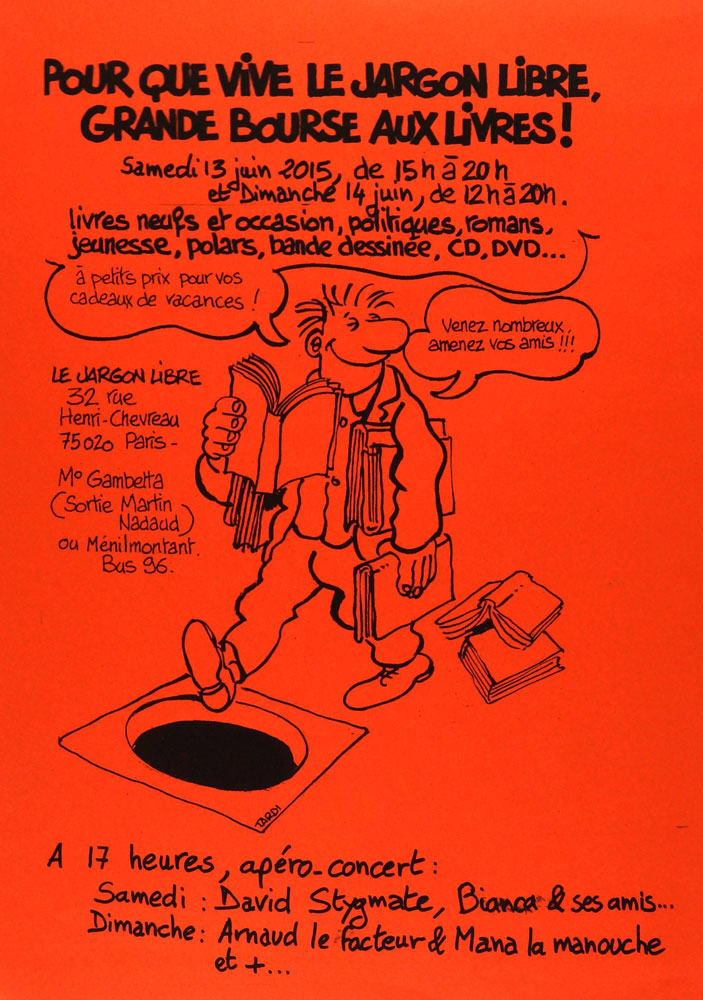 POUR QUE VIVE LE JARGON LIBRE,
GRANDE BOURSE AUX LIVRES !
Samedi 13 juin 2015, de 15h à 20h
et Dimanche 14 juin, de 12h à 20h.
livres neufs et occasion, politiques, romans,
jeunesse, polars, bande dessinée, CD, DVD...
à petits prix pour vos
cadeaux de vacances !
Venez nombreux,
amenez vos amis !!!
LE JARGON LIBRE
32 rue
Henri-Chevreau
75020 Paris -
Mo Gambetta
(Sortie Martin
Nadaud)
ou Ménilmontant.
Bus 96.
TARDI
A 17 heures, apéro-concert :
Samedi : David Stygmate, Bianca & ses amis...
Dimanche : Arnaud le facteur & Mana la manouche
et +...